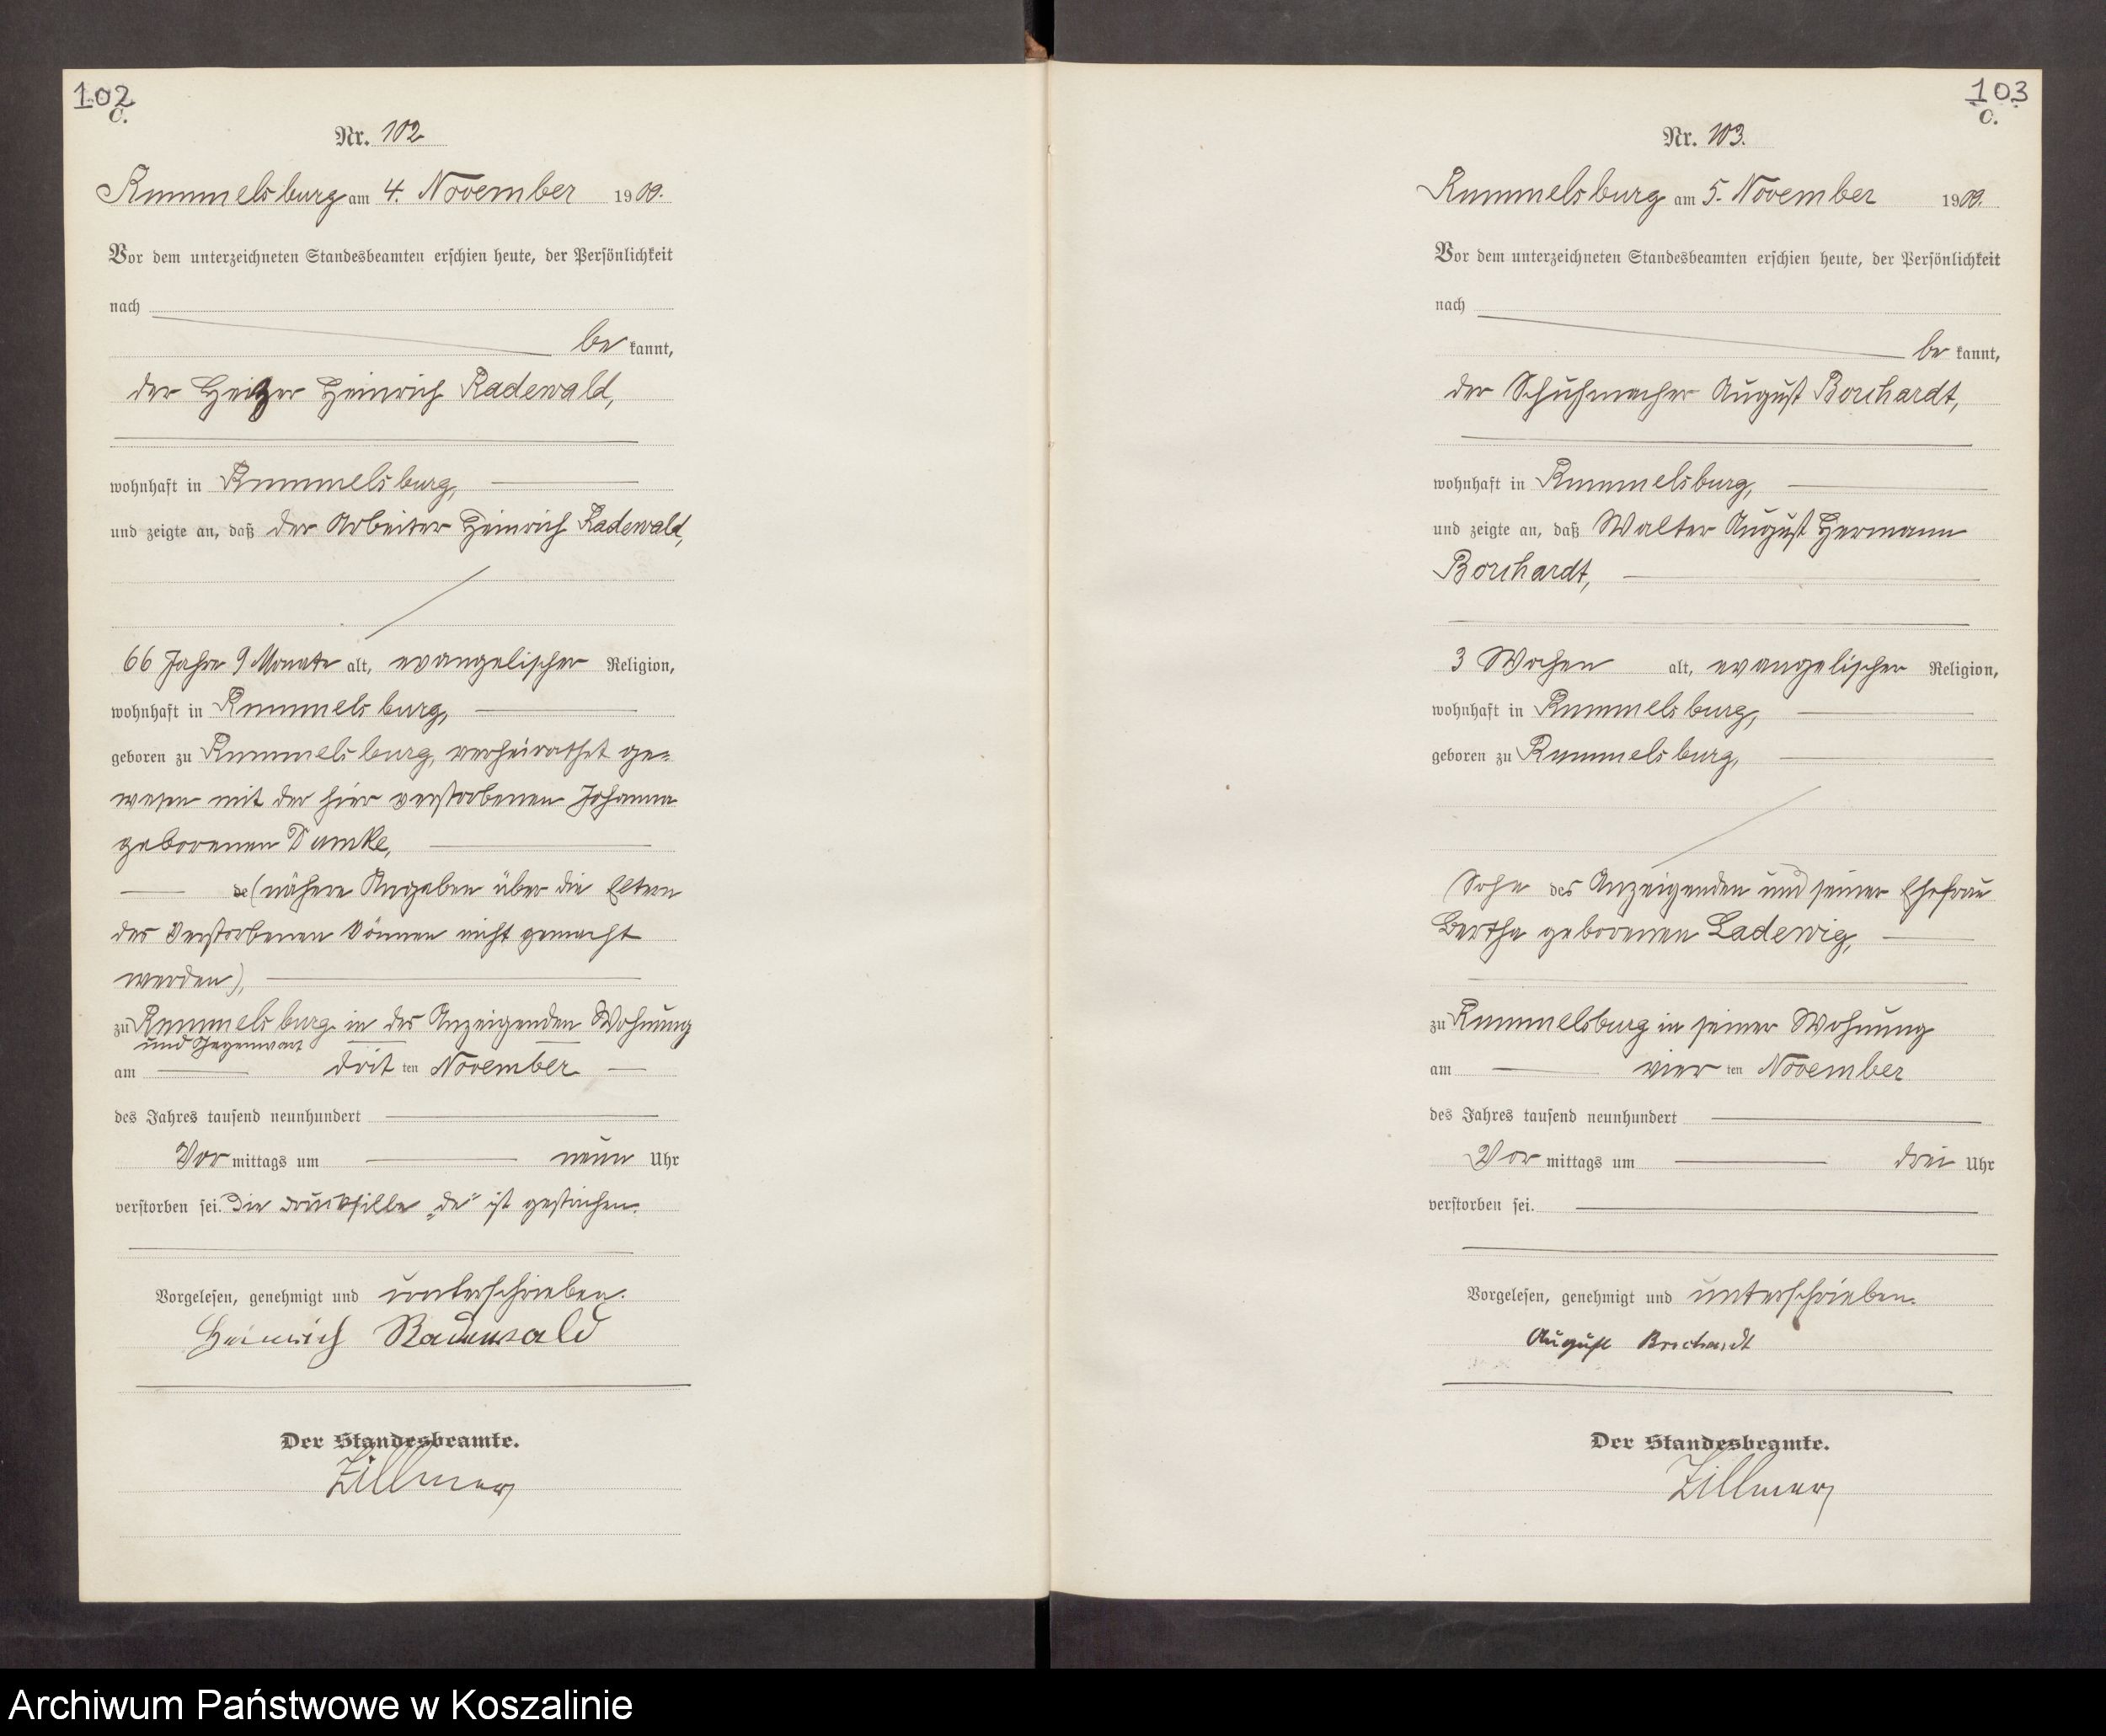 102
C.
Nr. 102
Rummelsburg am 4. November 1900.
Vor dem unterzeichneten Standesbeamten erschien heute, der Persönlichkeit
nach
be kannt,
der Heizer Heinrich Radewald,
wohnhaft in Rummelsburg,
und zeigte an, daß der Arbeiter Heinrich Radewald,
66 Jahre 9 Monate alt, evangelischer Religion,
wohnhaft in Rummelsburg,
geboren zu Rummelsburg, verheirathet ge=
wesen mit der hier verstorbenen Johanna
geborenen Damke,
de (nähere Angaben über die Eltern
des Verstorbenen können nicht gemacht
werden),
zu Rummelsburg in des Anzeigenden Wohnung
und Gegenwart
am dritten November
des Jahres tausend neunhundert
Vor mittags um neun Uhr
verstorben sei. Die Drucksilbe „de“ ist gestrichen.
Vorgelesen, genehmigt und unterschrieben.
Heinrich Radewald
Der Standesbeamte.
Zillmer
103
C.
Nr. 103.
Rummelsburg am 5. November 1900.
Vor dem unterzeichneten Standesbeamten erschien heute, der Persönlichkeit
nach
be kannt,
der Schuhmacher August Borchardt,
wohnhaft in Rummelsburg,
und zeigte an, daß Walter August Hermann
Borchardt,
3 Wochen alt, evangelischer Religion,
wohnhaft in Rummelsburg,
geboren zu Rummelsburg,
Sohn des Anzeigenden und seiner Ehefrau
Bertha geborenen Ladewig,
zu Rummelsburg in seiner Wohnung
am vierten November
des Jahres tausend neunhundert
Vor mittags um drei Uhr
verstorben sei.
Vorgelesen, genehmigt und unterschrieben.
August Borchardt
Der Standesbeamte.
Zillmer
Archiwum Państwowe w Koszalinie